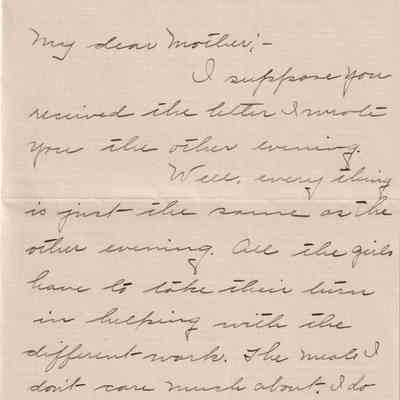 My dear Mother;-
I suppose you
received the letter I wrote
you the other evening.
Well, every thing
is just the same as the
other evening. All the girls
have to take their turn
in helping with the
different work. The meals I
don't care much about. I do